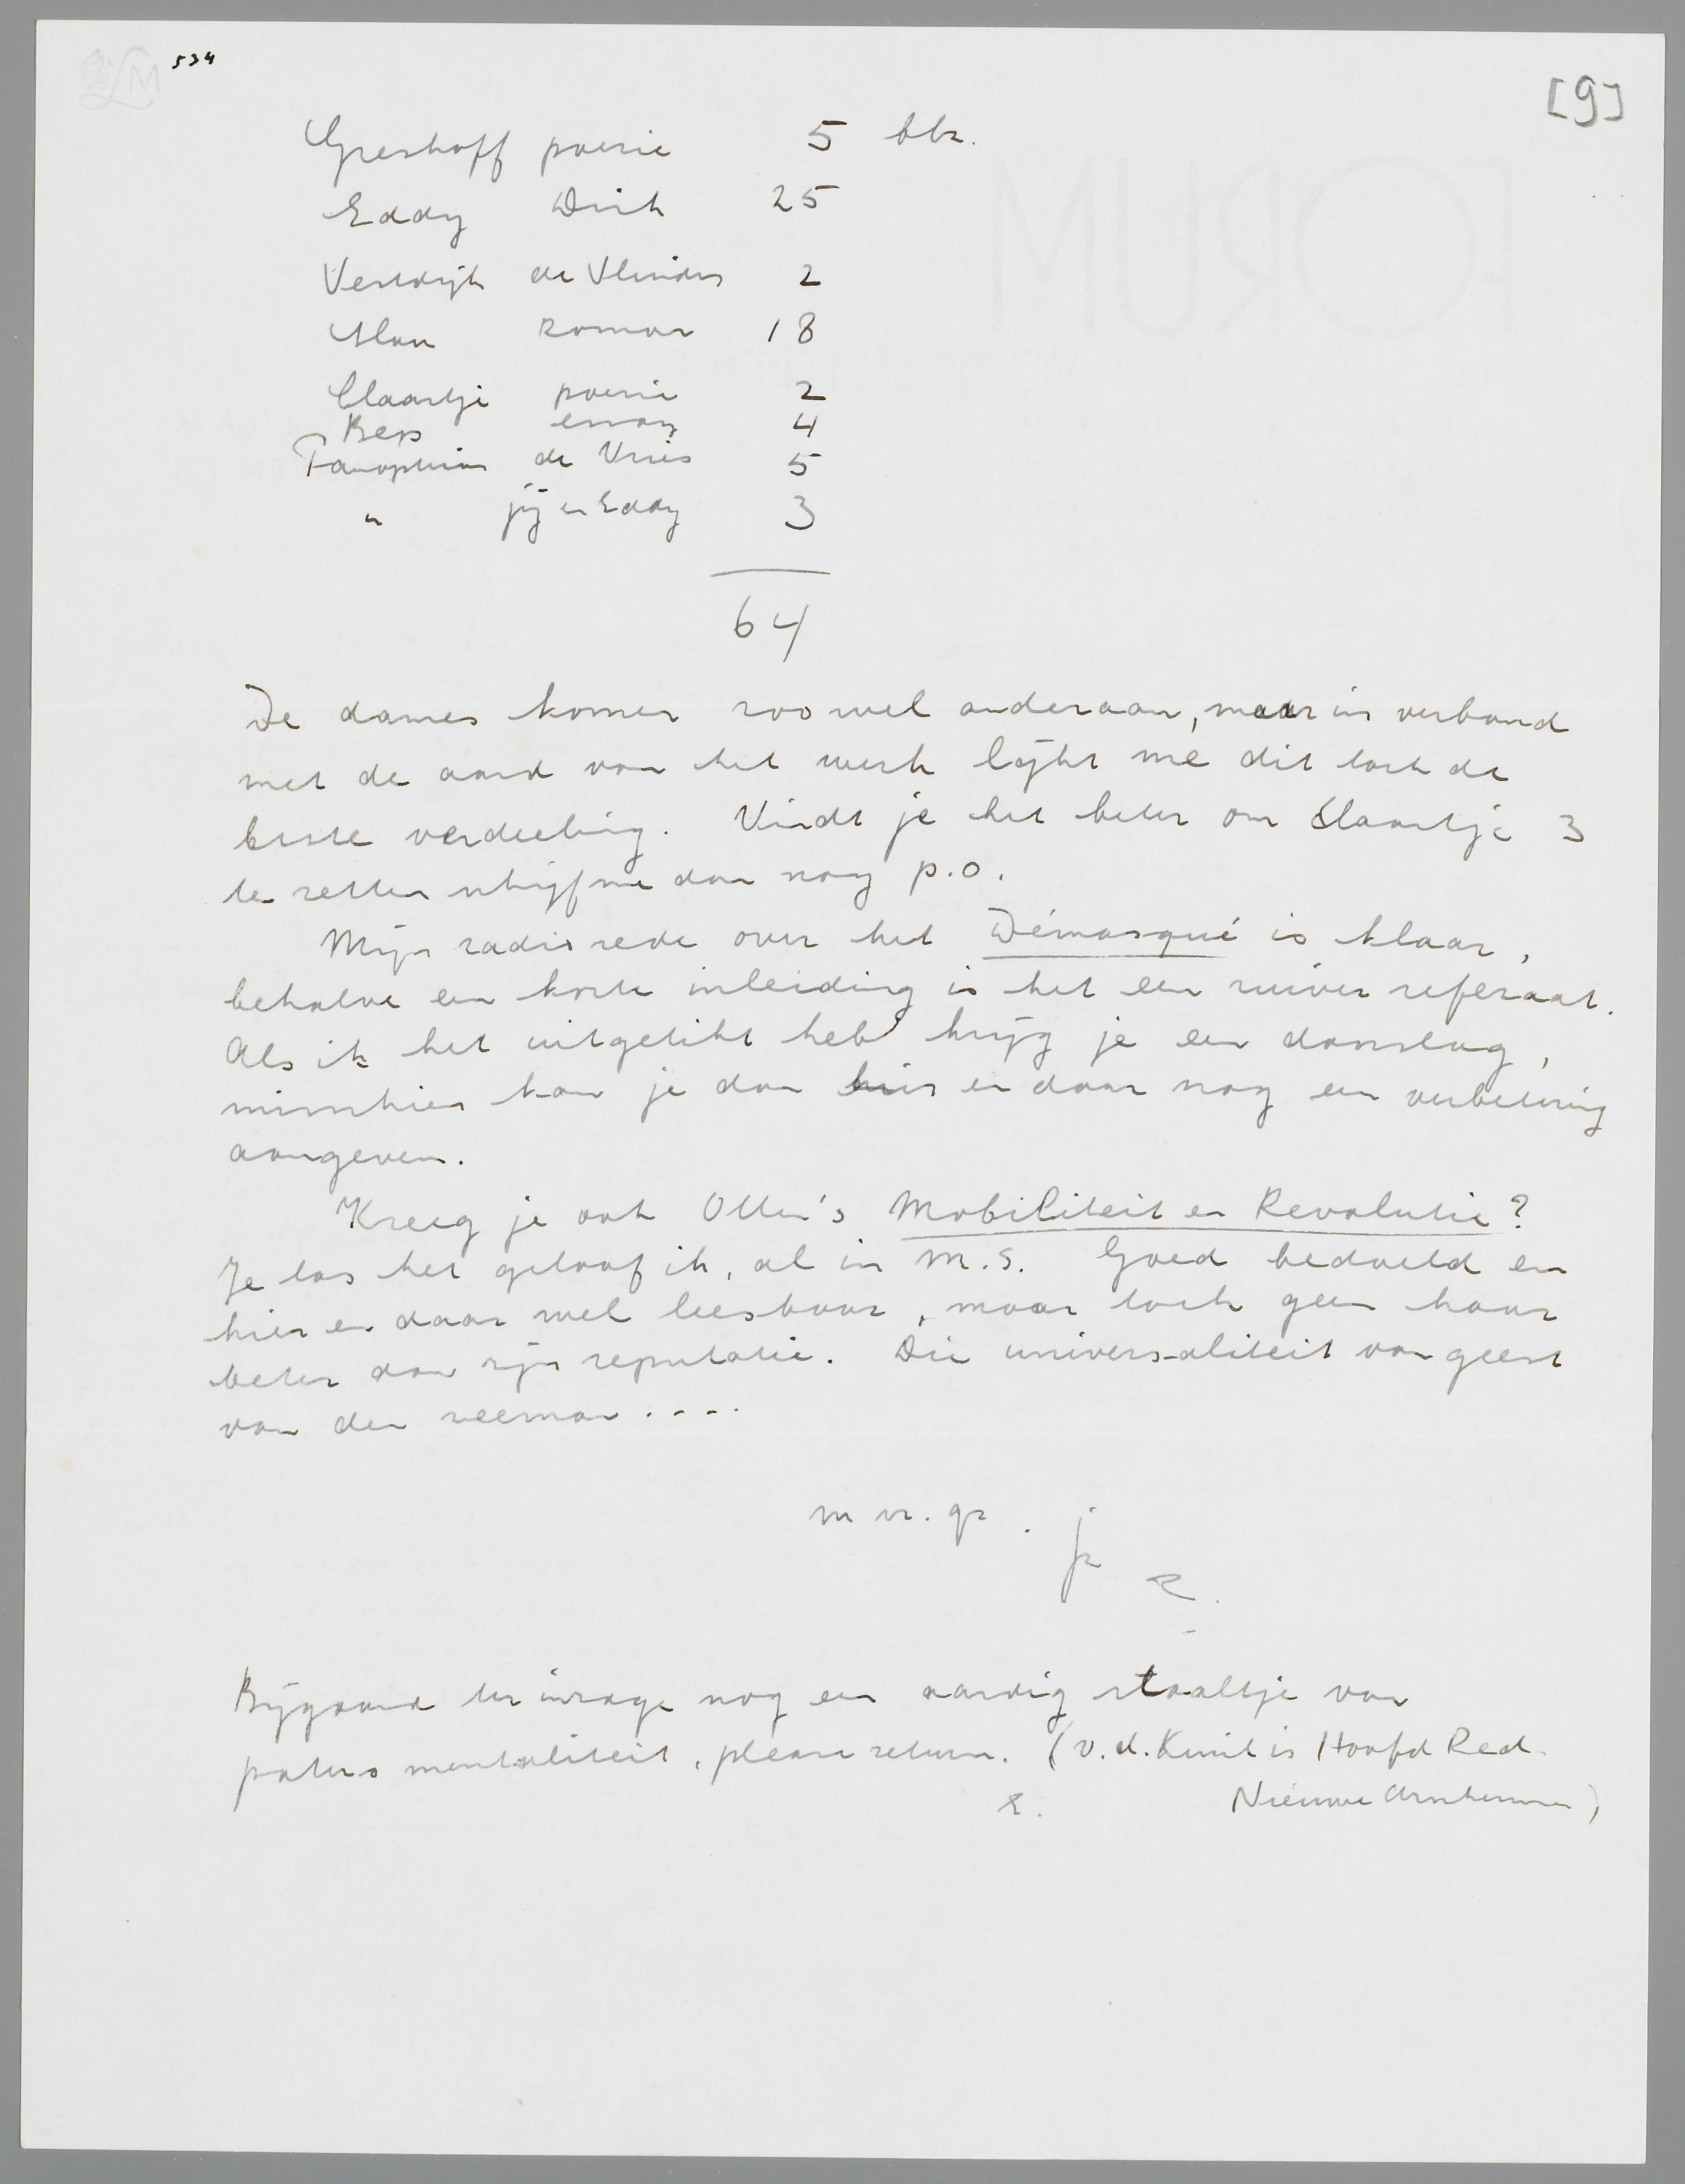 534
[9]
Greshoff poezie 5 blz.
Eddy Dirk 25
Vestdijk de Vlinders 2
Man Roman 18
Claartje poezie 2
Bep essay 4
Panopticum de Vries 5
" jij en Eddy 3
64
De dames komen zoo wel onderaan, maar in verband
met de aard van het werk lijkt me dit toch de
beste verdeeling. Vindt je het beter om Claartje 3
te zetten schrijf me dan nog p.o.
Mijn radiorede over het Démasqué is klaar,
behalve een korte inleiding is het een zuiver referaat.
Als ik het uitgetikt heb krijg je een doorslag,
misschien kan je dan hier en daar nog een verbetering
aangeven.
Kreeg je ook Otten's Mobiliteit en Revolutie?
Je las het geloof ik, al in M.S. Goed bedoeld en
hier en daar wel leesbaar, maar toch geen haar
beter dan zijn reputatie. Die universaliteit van geest
van den zeeman ....
m vr. gr. je
R.
Bijgaand ter inzage nog een aardig staaltje van
paters mentaliteit, please return. (v.d. Kunst is Hoofd Red.
R. Nieuwe Arnhemmer)
FORUM